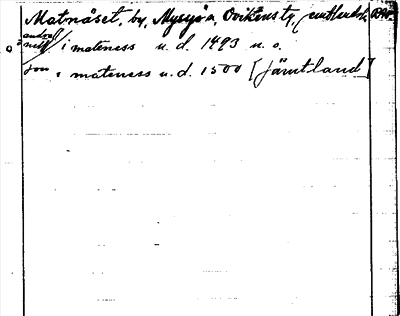 Matnäset, by, Myssjö s., Ovikens tg, Jämtlands l.
i mateness u. d. 1493 n. o.
Jon i mateness u. d. 1500 [Jämtland]